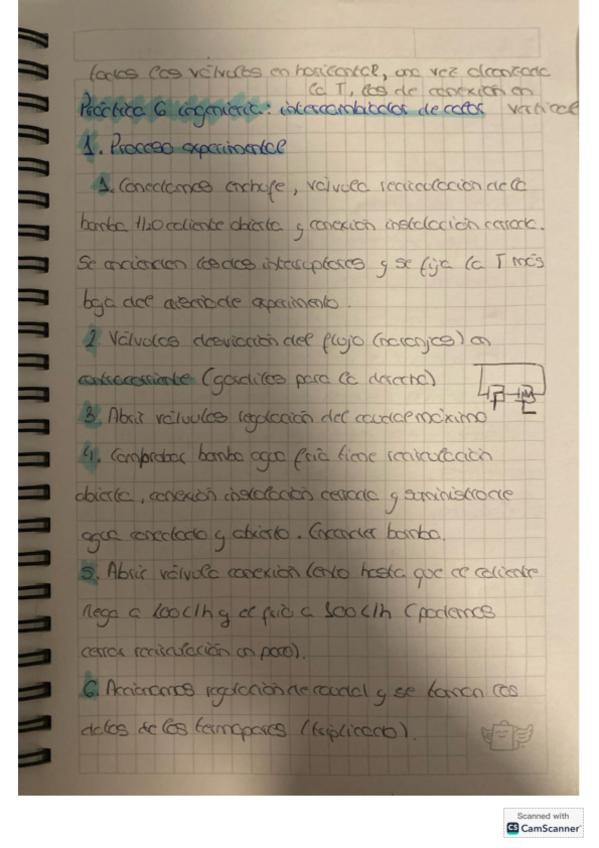 todas las válvulas en horizontal, una vez alcanzada
la T, las de conexión en
vertical
Práctica 6 ingeniería: intercambiador de calor
1. Proceso experimental
1. Conectamos enchufe, válvula recirculación de la
bomba H2O caliente abierta y conexión instalación cerrada.
Se encienden los dos interruptores y se fija la T más
baja del de experimento.
2. Válvulas desviación del flujo (naranjas) en
contracorriente (gordito para la derecha)
3. Abrir válvulas regulación del caudal máximo
4. Comprobar bomba agua fría tiene recirculación
abierta, conexión instalación cerrada y suministro de
agua conectado y abierto. Encender bomba.
5. Abrir válvula conexión lento hasta que el caliente
llega a l/h y el frío a l/h (podemos
cerrar recirculación un poco).
6. Accionamos regulación de caudal y se toman los
datos de los termopares (triplicado).
Scanned with
CS CamScanner